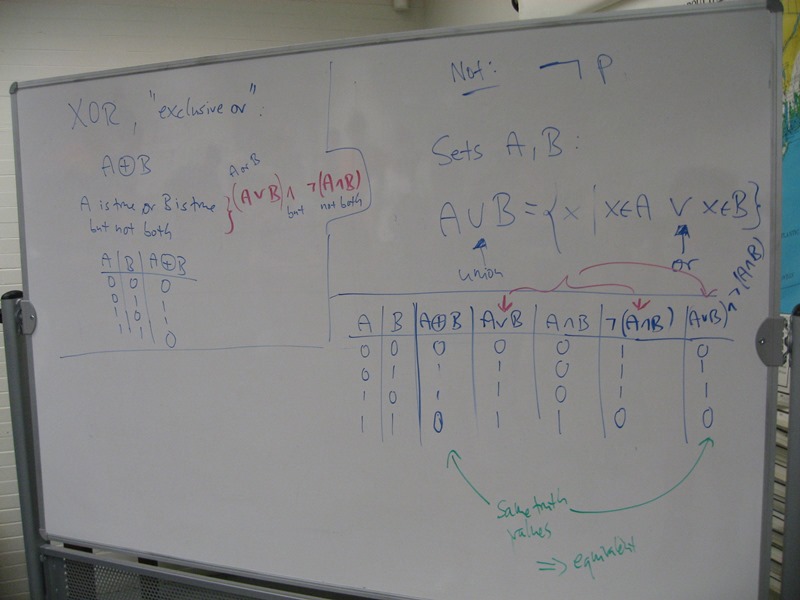 XOR, "exclusive or":
A⊕B
A is true or B is true
but not both
} (A∨B) ∧ ¬(A∧B)
A or B
but not both
A | B | A⊕B
0 0 0
0 1 1
1 0 1
1 1 0
Not: ¬ P
Sets A, B:
A∪B = {x | x∈A ∨ x∈B}
union
or
A | B | A⊕B | A∨B | A∧B | ¬(A∧B) | (A∨B) ∧ ¬(A∧B)
0 0 0 0 0 1 0
0 1 1 1 0 1 1
1 0 1 1 0 1 1
1 1 0 1 1 0 0
Same truth
values
=> equivalent